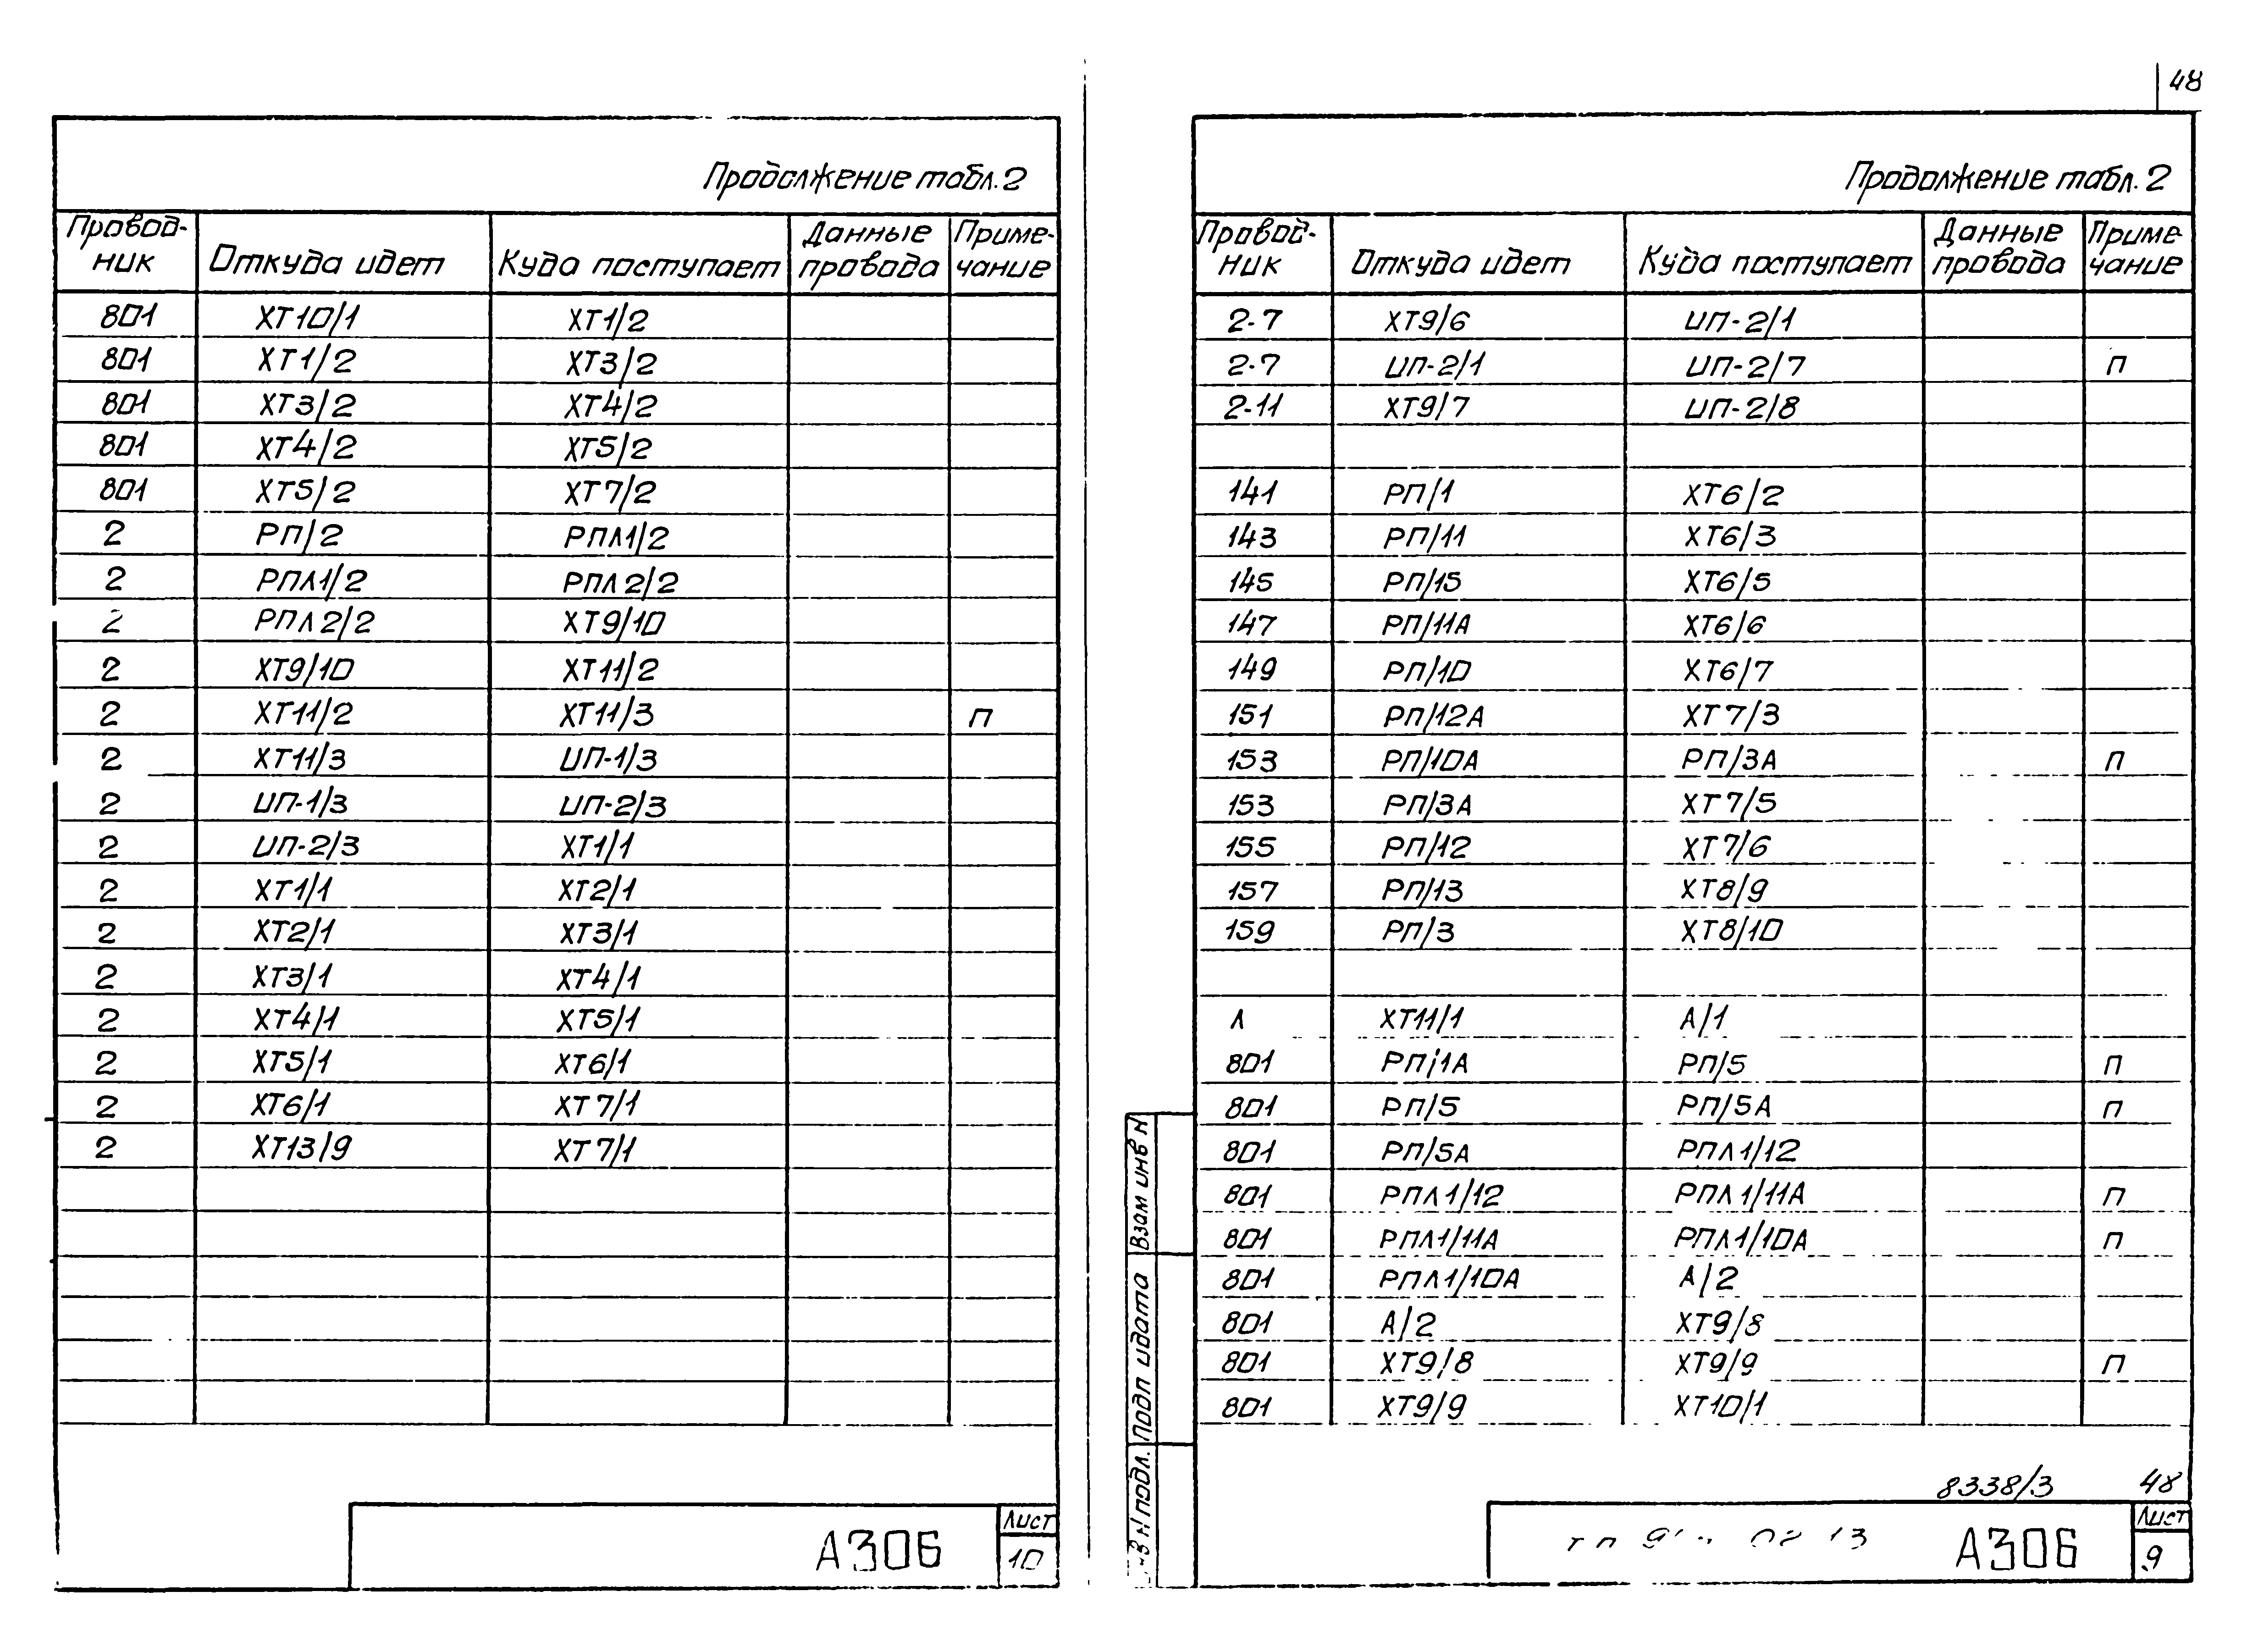 48
Продолжение табл. 2
Провод-ник Откуда идет Куда поступает Данные провода Приме-чание
801 ХТ10/1 ХТ1/2
801 ХТ1/2 ХТ3/2
801 ХТ3/2 ХТ4/2
801 ХТ4/2 ХТ5/2
801 ХТ5/2 ХТ7/2
2 РП/2 РПЛ1/2
2 РПЛ1/2 РПЛ2/2
2 РПЛ2/2 ХТ9/10
2 ХТ9/10 ХТ11/2
2 ХТ11/2 ХТ11/3 П
2 ХТ11/3 ИП-1/3
2 ИП-1/3 ИП-2/3
2 ИП-2/3 ХТ1/1
2 ХТ1/1 ХТ2/1
2 ХТ2/1 ХТ3/1
2 ХТ3/1 ХТ4/1
2 ХТ4/1 ХТ5/1
2 ХТ5/1 ХТ6/1
2 ХТ6/1 ХТ7/1
2 ХТ13/9 ХТ7/1
А306
Лист
10
Продолжение табл. 2
Провод-ник Откуда идет Куда поступает Данные провода Приме-чание
2-7 ХТ9/6 ИП-2/1
2-7 ИП-2/1 ИП-2/7 П
2-11 ХТ9/7 ИП-2/8
141 РП/1 ХТ6/2
143 РП/11 ХТ6/3
145 РП/15 ХТ6/5
147 РП/11А ХТ6/6
149 РП/10 ХТ6/7
151 РП/12А ХТ7/3
153 РП/10А РП/3А П
153 РП/3А ХТ7/5
155 РП/12 ХТ7/6
157 РП/13 ХТ8/9
159 РП/3 ХТ8/10
Л ХТ11/1 А/1
801 РП/1А РП/5 П
801 РП/5 РП/5А П
801 РП/5А РПЛ1/12
801 РПЛ1/12 РПЛ1/11А П
801 РПЛ1/11А РПЛ1/10А П
801 РПЛ1/10А А/2
801 А/2 ХТ9/8
801 ХТ9/8 ХТ9/9 П
801 ХТ9/9 ХТ10/1
Взам инв N
Подп и дата
N подл.
8338/3 48
А306
Лист
9